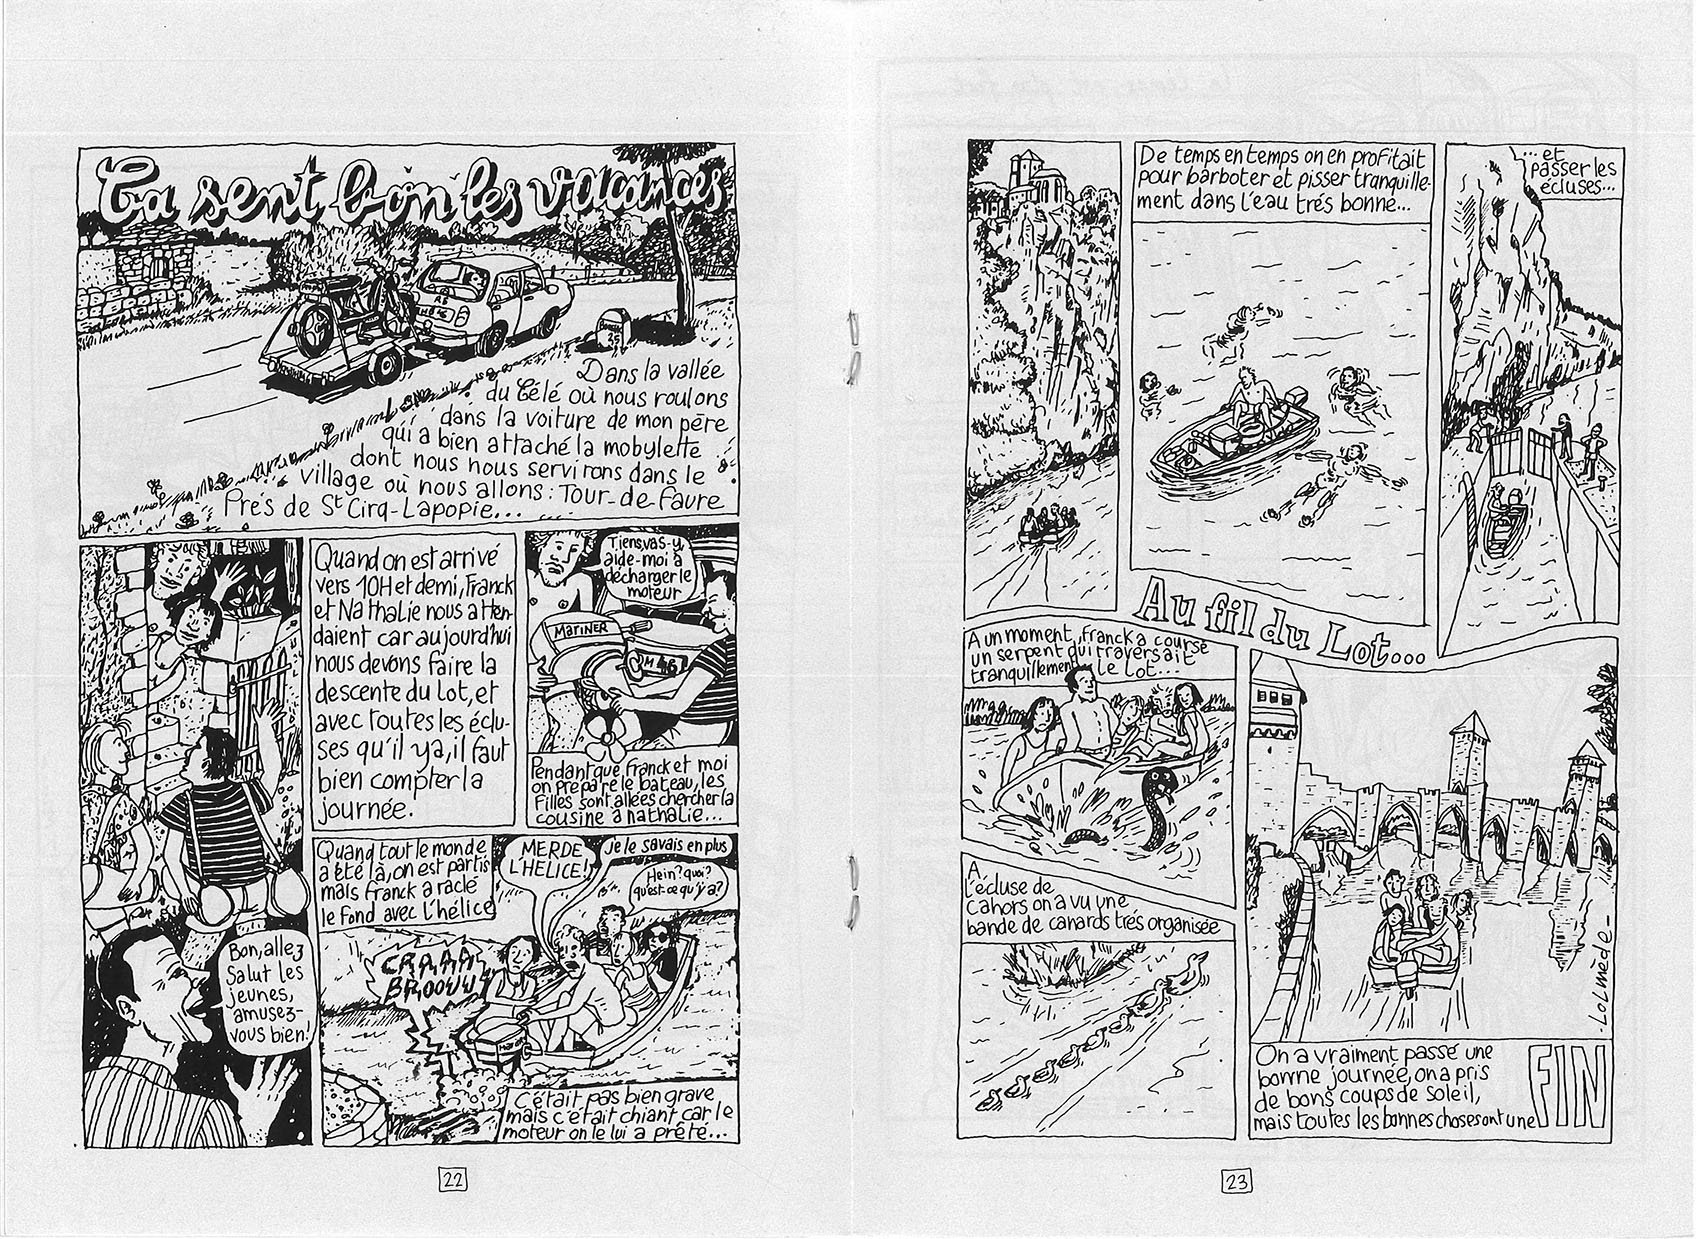 Ça sent bon les vacances
Dans la vallée
du Célé où nous roulons
dans la voiture de mon père
qui a bien attaché la mobylette
dont nous nous servirons dans le
village où nous allons : Tour-de-Faure
Prés de St Cirq-Lapopie...
Quand on est arrivé
vers 10H et demi, Franck
et Nathalie nous atten-
daient car aujourd'hui
nous devons faire la
descente du Lot, et
avec toutes les éclu-
ses qu'il y a, il faut
bien compter la
journée.
Tiens, vas-y,
aide-moi à
décharger le
moteur
MARINER
Pendant que Franck et moi
on prépare le bateau, les
filles sont allées chercher la
cousine à nathalie...
Bon, allez
Salut les
jeunes,
amusez-
vous bien!
Quand tout le monde
a été là, on est partis
mais Franck a raclé
le fond avec l'hélice
MERDE
L'HELICE!
Je le savais en plus
Hein? quoi?
qu'est-ce qu'y a?
CRAAA
BROOUW
C'était pas bien grave
mais c'était chiant car le
moteur on le lui a prêté...
22
De temps en temps on en profitait
pour barboter et pisser tranquille-
ment dans l'eau trés bonne...
...et
passer les
écluses...
Au fil du Lot...
A un moment, Franck a coursé
un serpent qui traversait
tranquillement Le Lot...
A
L'écluse de
Cahors on a vu une
bande de canards trés organisée
-LOLMÈDE-
On a vraiment passé une
bonne journée, on a pris
de bons coups de soleil,
mais toutes les bonnes choses ont une
FIN
23